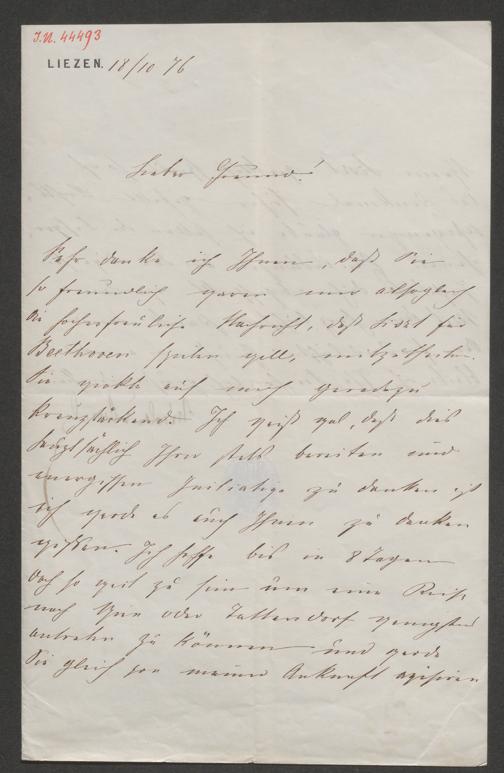 I.N. 44493
LIEZEN. 18/10 76
Lieber Freund!
Sehr danke ich Ihnen, daß Sie
so freundlich waren mir allsogleich
die hocherfreuliche Nachricht, daß Liszt für
Beethoven spielen will, mitzutheilen.
Sie wirkte auf mich geradezu
Ich weiß wol, daß dies
hauptsächlich Ihrer stets bereiten und
energischen Initiative zu danken ist
ich werde es auch Ihnen zu danken
wissen. Ich hoffe bis in 8 Tagen
doch so weit zu sein um eine Reise
nach Wien oder Tattendorf wenigstens
antreten zu können und werde
Sie gleich von meiner Ankunft avisiren